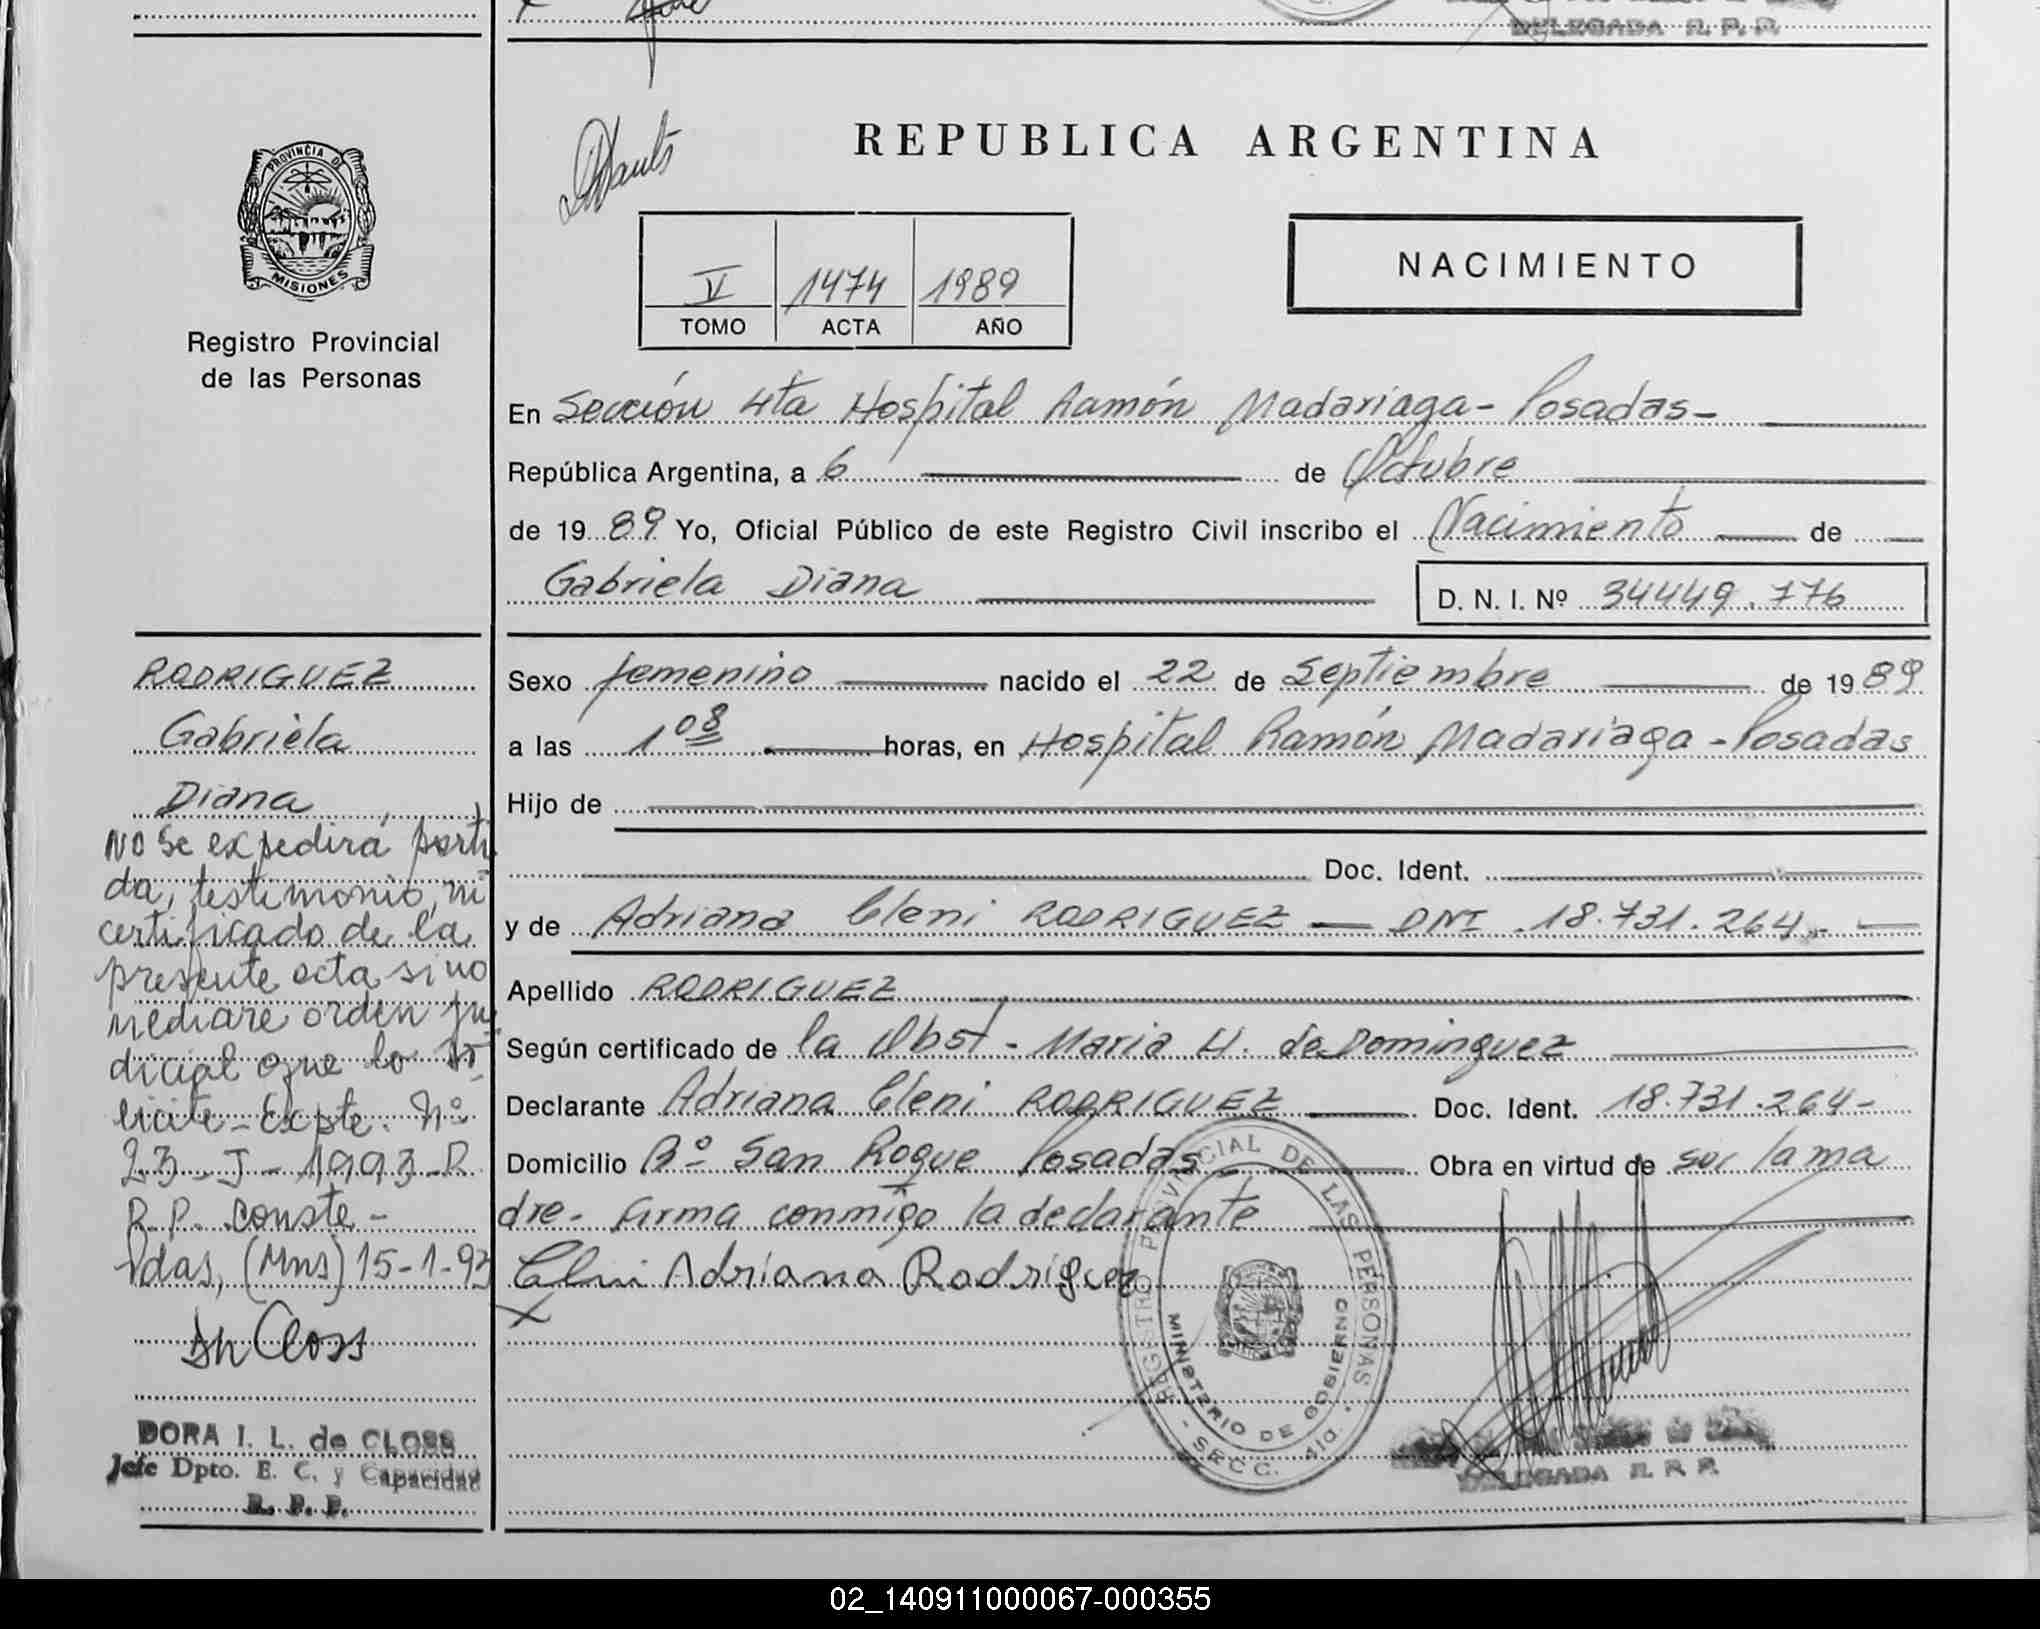 DELEGADA R. P. P.
PROVINCIA DE
MISIONES
Registro Provincial
de las Personas
REPUBLICA ARGENTINA
V 1474 1989
TOMO ACTA AÑO
NACIMIENTO
En Sección 4ta Hospital Ramón Madariaga - Posadas -
República Argentina, a 6 de Octubre
de 1989 Yo, Oficial Público de este Registro Civil inscribo el Nacimiento de
Gabriela Diana
D. N. I. Nº 34449.776
RODRIGUEZ
Gabriela
Diana
NO Se expedirá parti
da, testimonio, ni
certificado de la
presente acta si no
mediare orden ju
dicial que lo so-
licite - Expte. Nº
23 - J - 1993 - R
R. P. Conste -
Pdas, (Mns) 15-1-93
DORA I. L. de CLOSS
Jefe Dpto. E. C. y Capacidad
R. P. P.
Sexo femenino nacido el 22 de Septiembre de 1989
a las 1 08 horas, en Hospital Ramón Madariaga - Posadas
Hijo de
Doc. Ident.
y de Adriana Cleni RODRIGUEZ — DNI 18.731.264.-
Apellido RODRIGUEZ
Según certificado de la Obst - Maria H. de Dominguez
Declarante Adriana Cleni RODRIGUEZ Doc. Ident. 18.731.264-
Domicilio Bº San Roque Posadas Obra en virtud de ser la ma
dre - firma conmigo la declarante
Cleni Adriana Rodriguez
X
REGISTRO PROVINCIAL DE LAS PERSONAS
MINISTERIO DE GOBIERNO
- SECC. 4ta. -
DELEGADA R. P. P.
02_140911000067-000355